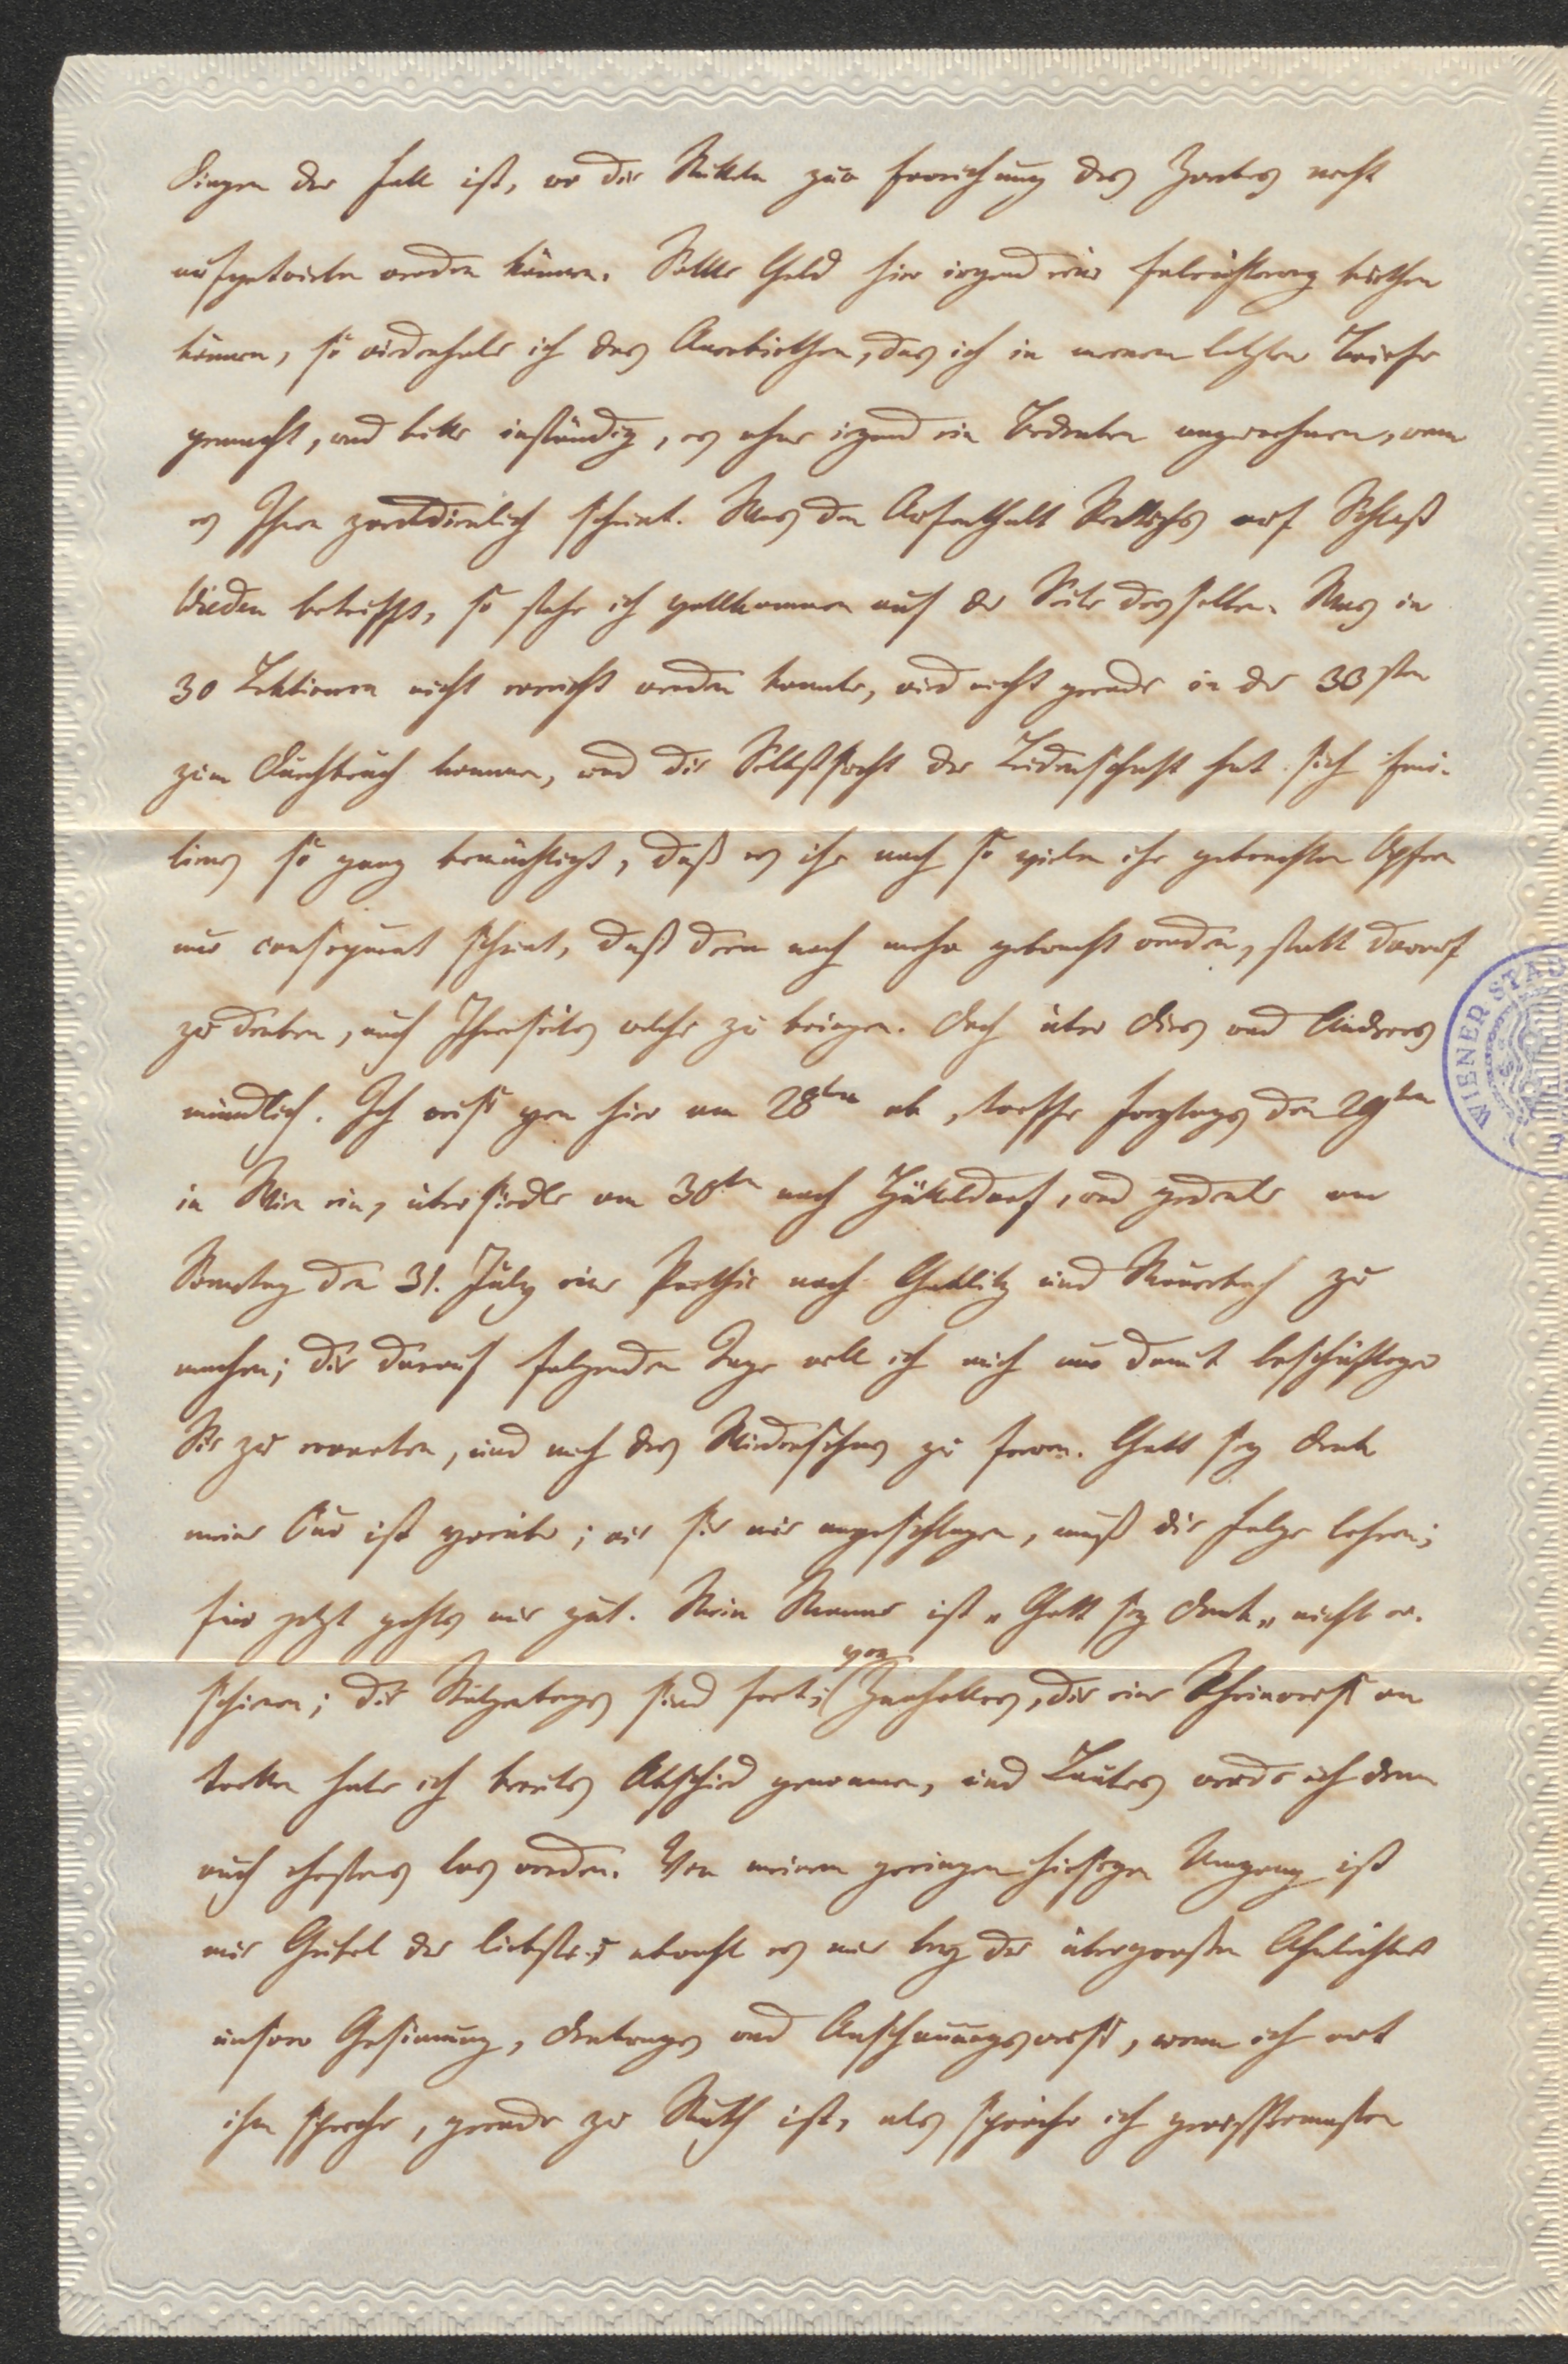 Dingen der Fall ist, wo die Mittel zur Erreichung des Zweckes nicht
aufgetrieben werden können. Sollte Geld hier irgend eine Erleichterung biethen
können, so wiederhole ich das Anerbiethen, das ich in meinem letzten Briefe
gemacht, und bitte inständig, es ohne irgend ein Bedenken anzunehmen, wenn
es Ihnen zweckdienlich scheint. Was den Aufenthalt auf Schloß
betrifft, so stehe ich vollkommen auf der Seite desselben. Was in
30 Lektionen nicht erreicht werden konnte, wird nicht gerade in der 33sten
zum Durchbruch kommen, und die Selbstsucht der Leidenschaft hat sich Emi-
liens so ganz bemächtigt, daß es ihr nach so vielen ihr gebrachten Opfern
nur consequent scheint, daß deren noch mehr gebracht werden, statt darauf
zu denken, auch Ihrerseits welche zu bringen. Doch über dies und Anderes
mündlich. Ich reise von hier am 28ten ab, treffe Freytags den 29ten
in Wien ein, übersiedle am 30ten nach Hütteldorf, und gedenke am
Sonntag den 31. July eine Parthie nach Gablitz und Mauerbach zu
machen; die darauf folgenden Tage will ich mich nur damit beschäftigen
Sie zu erwarten, und mich des Wiedersehns zu freuen. Gott sey Dank
meine Cur ist vorüber; wie sie mir angeschlagen, muß die Folge lehren;
für jetzt gehts mir gut. Mein Mann ist „Gott sey Dank„ nicht er-
schienen; die sind fort; von
die eine Rheinreise an
tretten habe ich bereits Abschied genommen, und werde ich denn
auch ehestens los werden. Von meinem geringen hiesigen Umgang ist
mir der liebste; obwohl es mir bey der übergroßen Ähnlichkeit
unserer Gesinnung, Denkungs und Anschauungsweise, wenn ich mit
ihm spreche, gerade zu Muth ist, als spräche ich gewissermaßen
WIENER STA